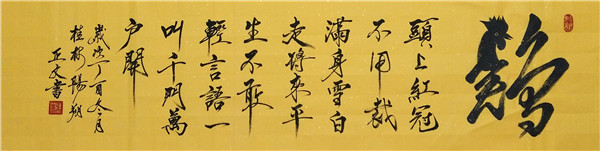 鷄
頭上紅冠
不用裁
滿身雪白
走將來平
生不敢
輕言語一
叫千門萬
戶開
歲次丁酉冬月
桂林陽朔
文書